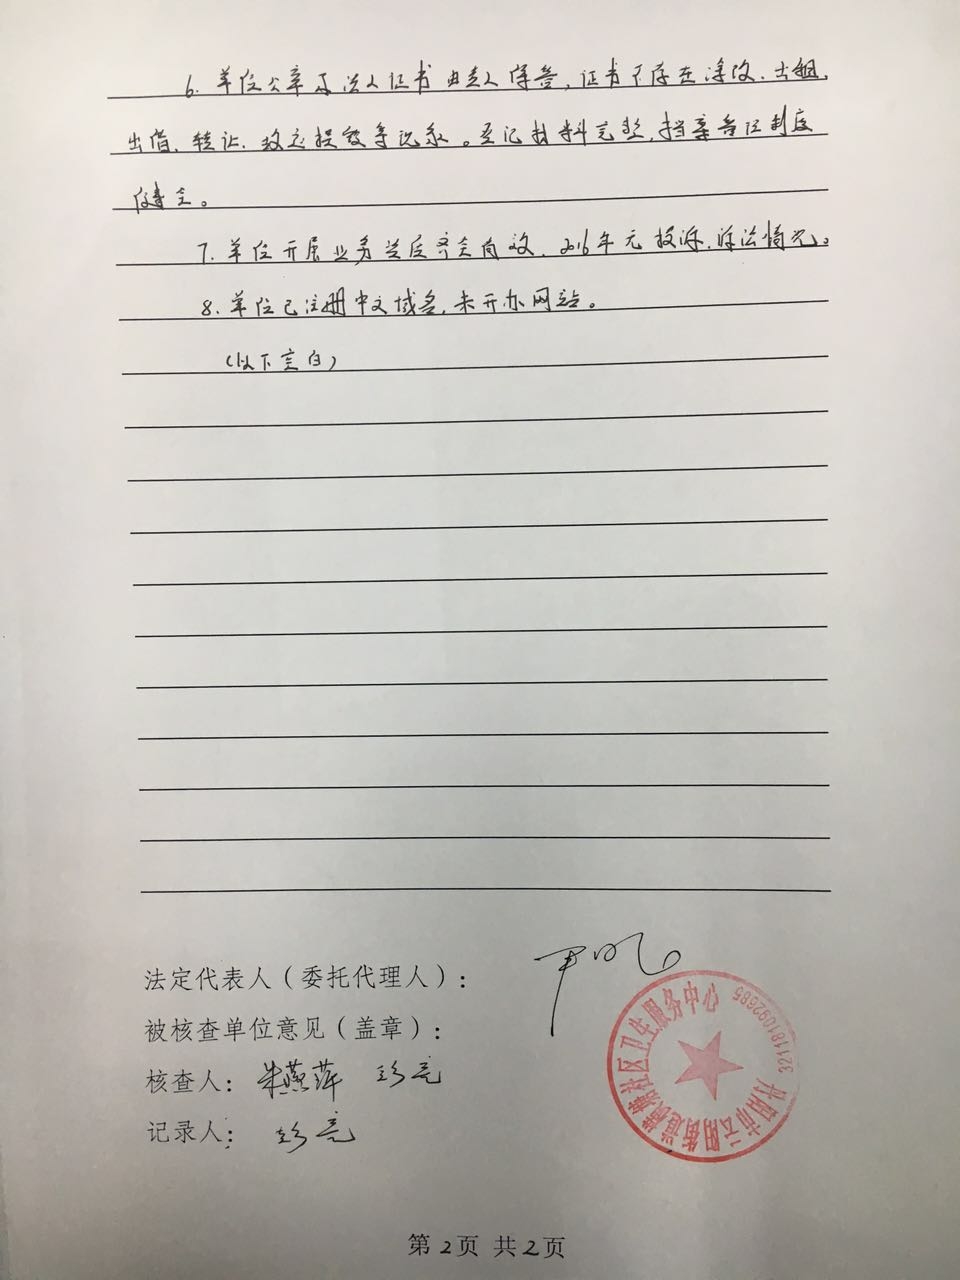 6. 单位公章及法人证书由专人保管,证书不存在涂改、出租、
出借、转让、故意损毁等现象。登记材料完整,档案管理制度
健全。
7. 单位开展业务
2016年无投诉、涉法情况。
8. 单位已注册中文域名,未开办网站。
(以下空白)
法定代表人(委托代理人):
被核查单位意见(盖章):
核查人: 朱燕萍 彭亮
记录人: 彭亮
丹阳市云阳街道横塘社区卫生服务中心
3211181092685
第2页 共2页